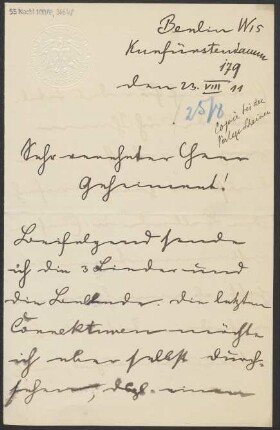 55 Nachl 100/A,
Berlin W15
Kurfürstendamm
179
den 23. VIII 11
25/8
Copie bei den
Sehr verehrter Herr
Geheimrat!
Beifolgend sende
ich die 3 Lieder und
die Ballade. Die letzten
Correkturen möchte
ich aber selbst durch-
sehen, dsgl. einen